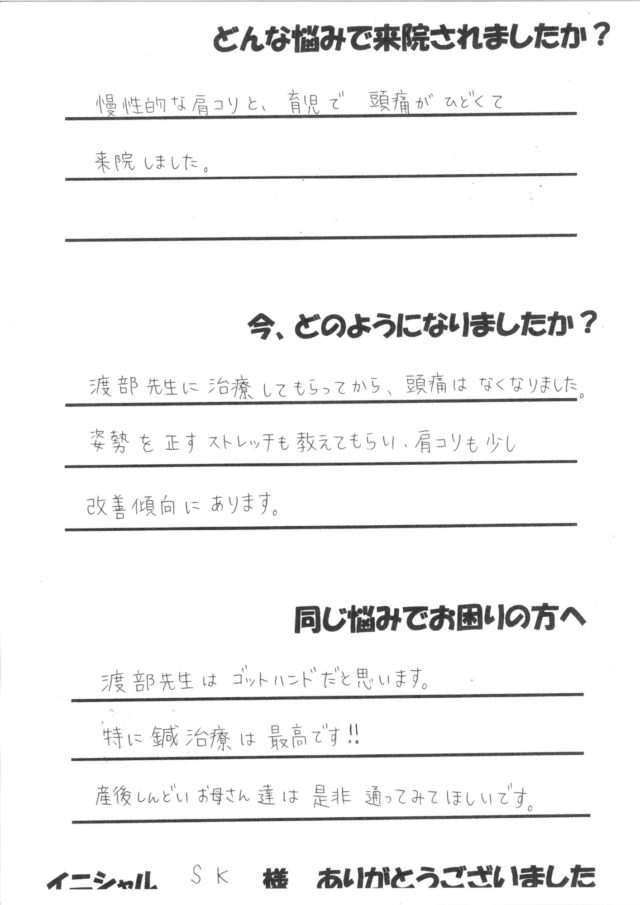 どんな悩みで来院されましたか？
慢性的な肩コリと、育児で 頭痛が ひどくて
来院しました。
今、どのようになりましたか？
渡部先生に治療してもらってから、頭痛は なくなりました。
姿勢を正すストレッチも教えてもらい、肩コリも少し
改善傾向にあります。
同じ悩みでお困りの方へ
渡部先生は ゴットハンドだと思います。
特に鍼治療は最高です!!
産後しんどいお母さん達は是非通ってみてほしいです。
イニシャル SK 様 ありがとうございました